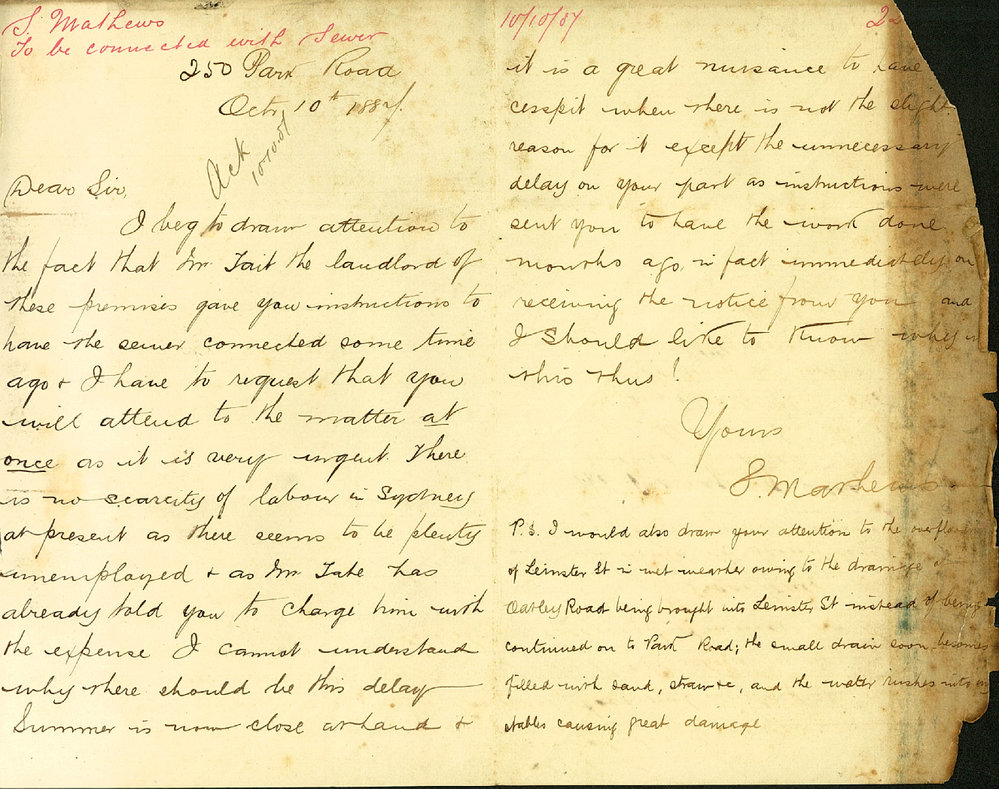 S. Mathews
To be connected with Sewer
250 Park Road
Octr 10th 1887.
Ack
10.10.87
Dear Sir,
I beg to draw attention to
the fact that Mr Tait the landlord of
these premises gave you instructions to
have the sewer connected some time
ago & I have to request that you
will attend to the matter at
once as it is very urgent. There
is no scarcity of labour in Sydney
at present as there seems to be plenty
unemployed & as Mr Tate has
already told you to charge him with
the expense I cannot understand
why there should be this delay
Summer is now close at hand &
10/10/87
22
it is a great nuisance to have
cesspit when there is not the slight
reason for it except the unnecessary
delay on your part as instructions were
sent you to have the work done
months ago, in fact immediately on
receiving the notice from you and
I should like to know why is
this thus!
Yours
S. Mathews
P.S. I would also draw your attention to the overflow
of Leinster St in wet weather owing to the drainage of
Oatley Road being brought into Leinster St instead of being
continued on to Park Road; the small drain soon becomes
filled with sand, straw &c, and the water rushes into
stables causing great damage